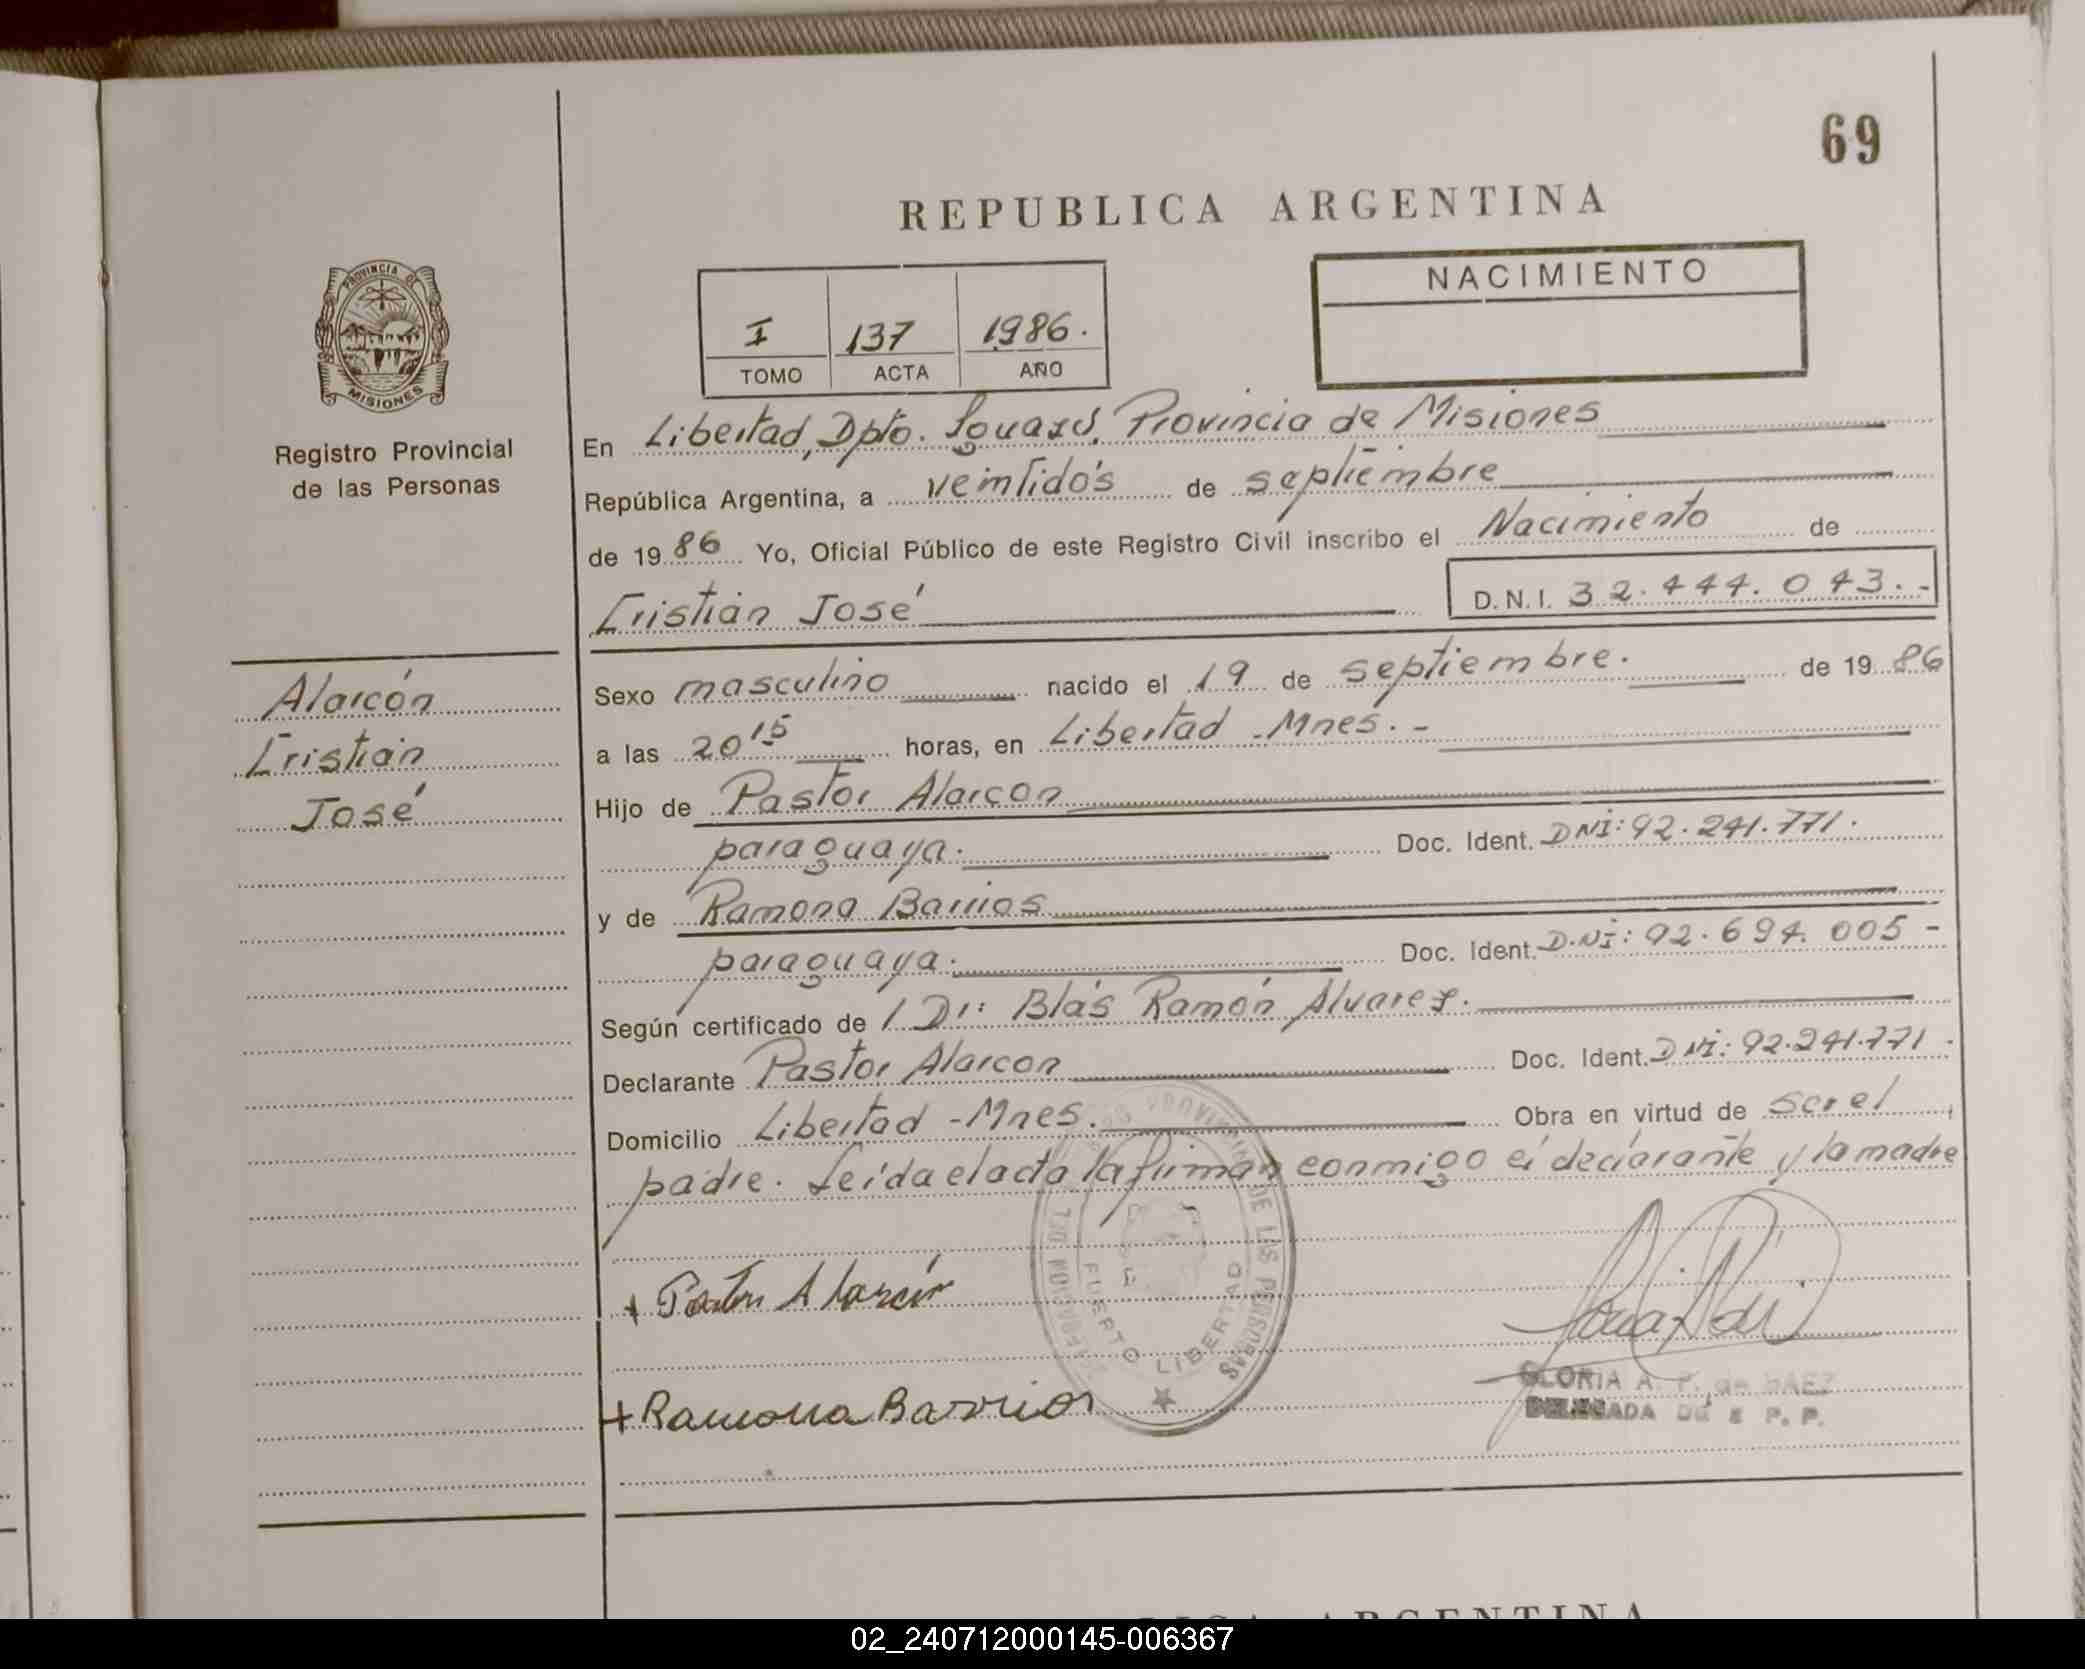 69
REPUBLICA ARGENTINA
PROVINCIA DE
MISIONES
Registro Provincial
de las Personas
I 137 1986.
TOMO ACTA AÑO
NACIMIENTO
En Libertad, Dpto. Iguazú, Provincia de Misiones
República Argentina, a veintidós de septiembre
de 1986 Yo, Oficial Público de este Registro Civil inscribo el Nacimiento de
Cristián José D.N.I. 32.444.043.-
Alarcón
Cristián
José
Sexo masculino nacido el 19 de septiembre. de 1986
a las 20 15 horas, en Libertad - Mnes. -
Hijo de Pastor Alarcon
paraguaya. Doc. Ident. DNI: 92.241.771.
y de Ramona Barrios
paraguaya. Doc. Ident. D.NI: 92.694.005 -
Según certificado de / Dr: Blás Ramón Alvarez.
Declarante Pastor Alarcon Doc. Ident. DNI: 92.241.771.
Domicilio Libertad - Mnes. Obra en virtud de ser el
padre. Leída el acta la firman conmigo el declarante y la madre
+ Pastor Alarcón
+ Ramona Barrios
DE LAS PERSONAS
PUERTO LIBERTAD
GLORIA A. P. de SAEZ
DELEGADA P. P.
ARGENTINA
02_240712000145-006367